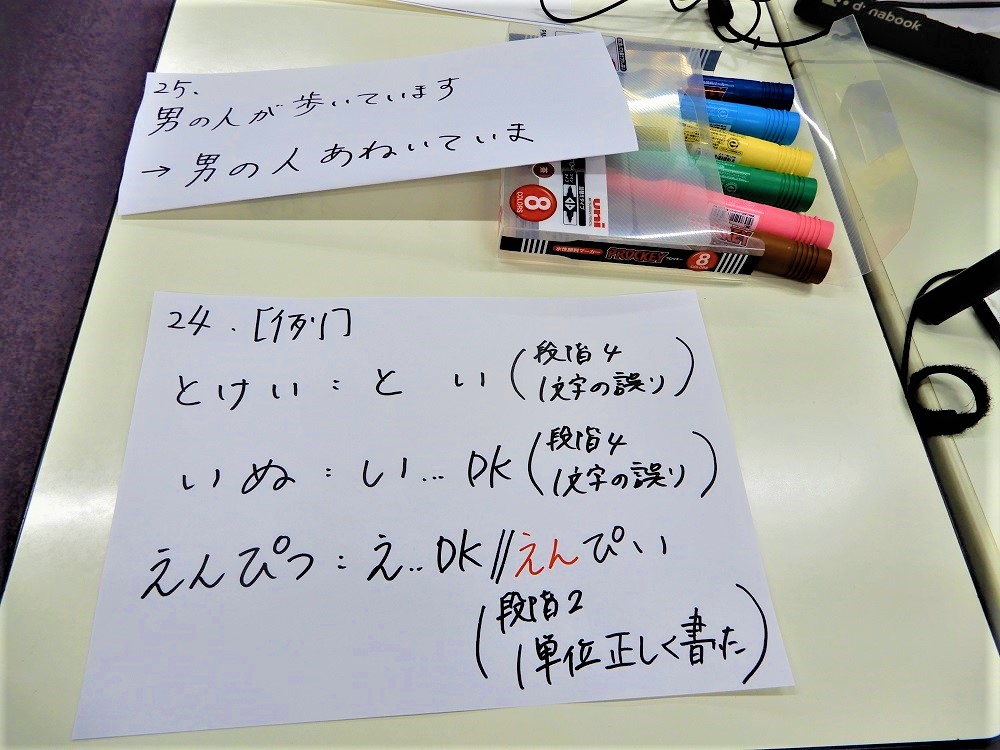 25.
男の人が歩いています
→ 男の人あねいていま
dynabook
8
COLORS
uni
水性顔料マーカー PROCKEY 8
COLORS
24. [例]
とけい : と い (段階4
1文字の誤り)
いぬ : い… DK (段階4
1文字の誤り)
えんぴつ : え‥ DK // えんぴい
(段階2
1単位正しく書た)